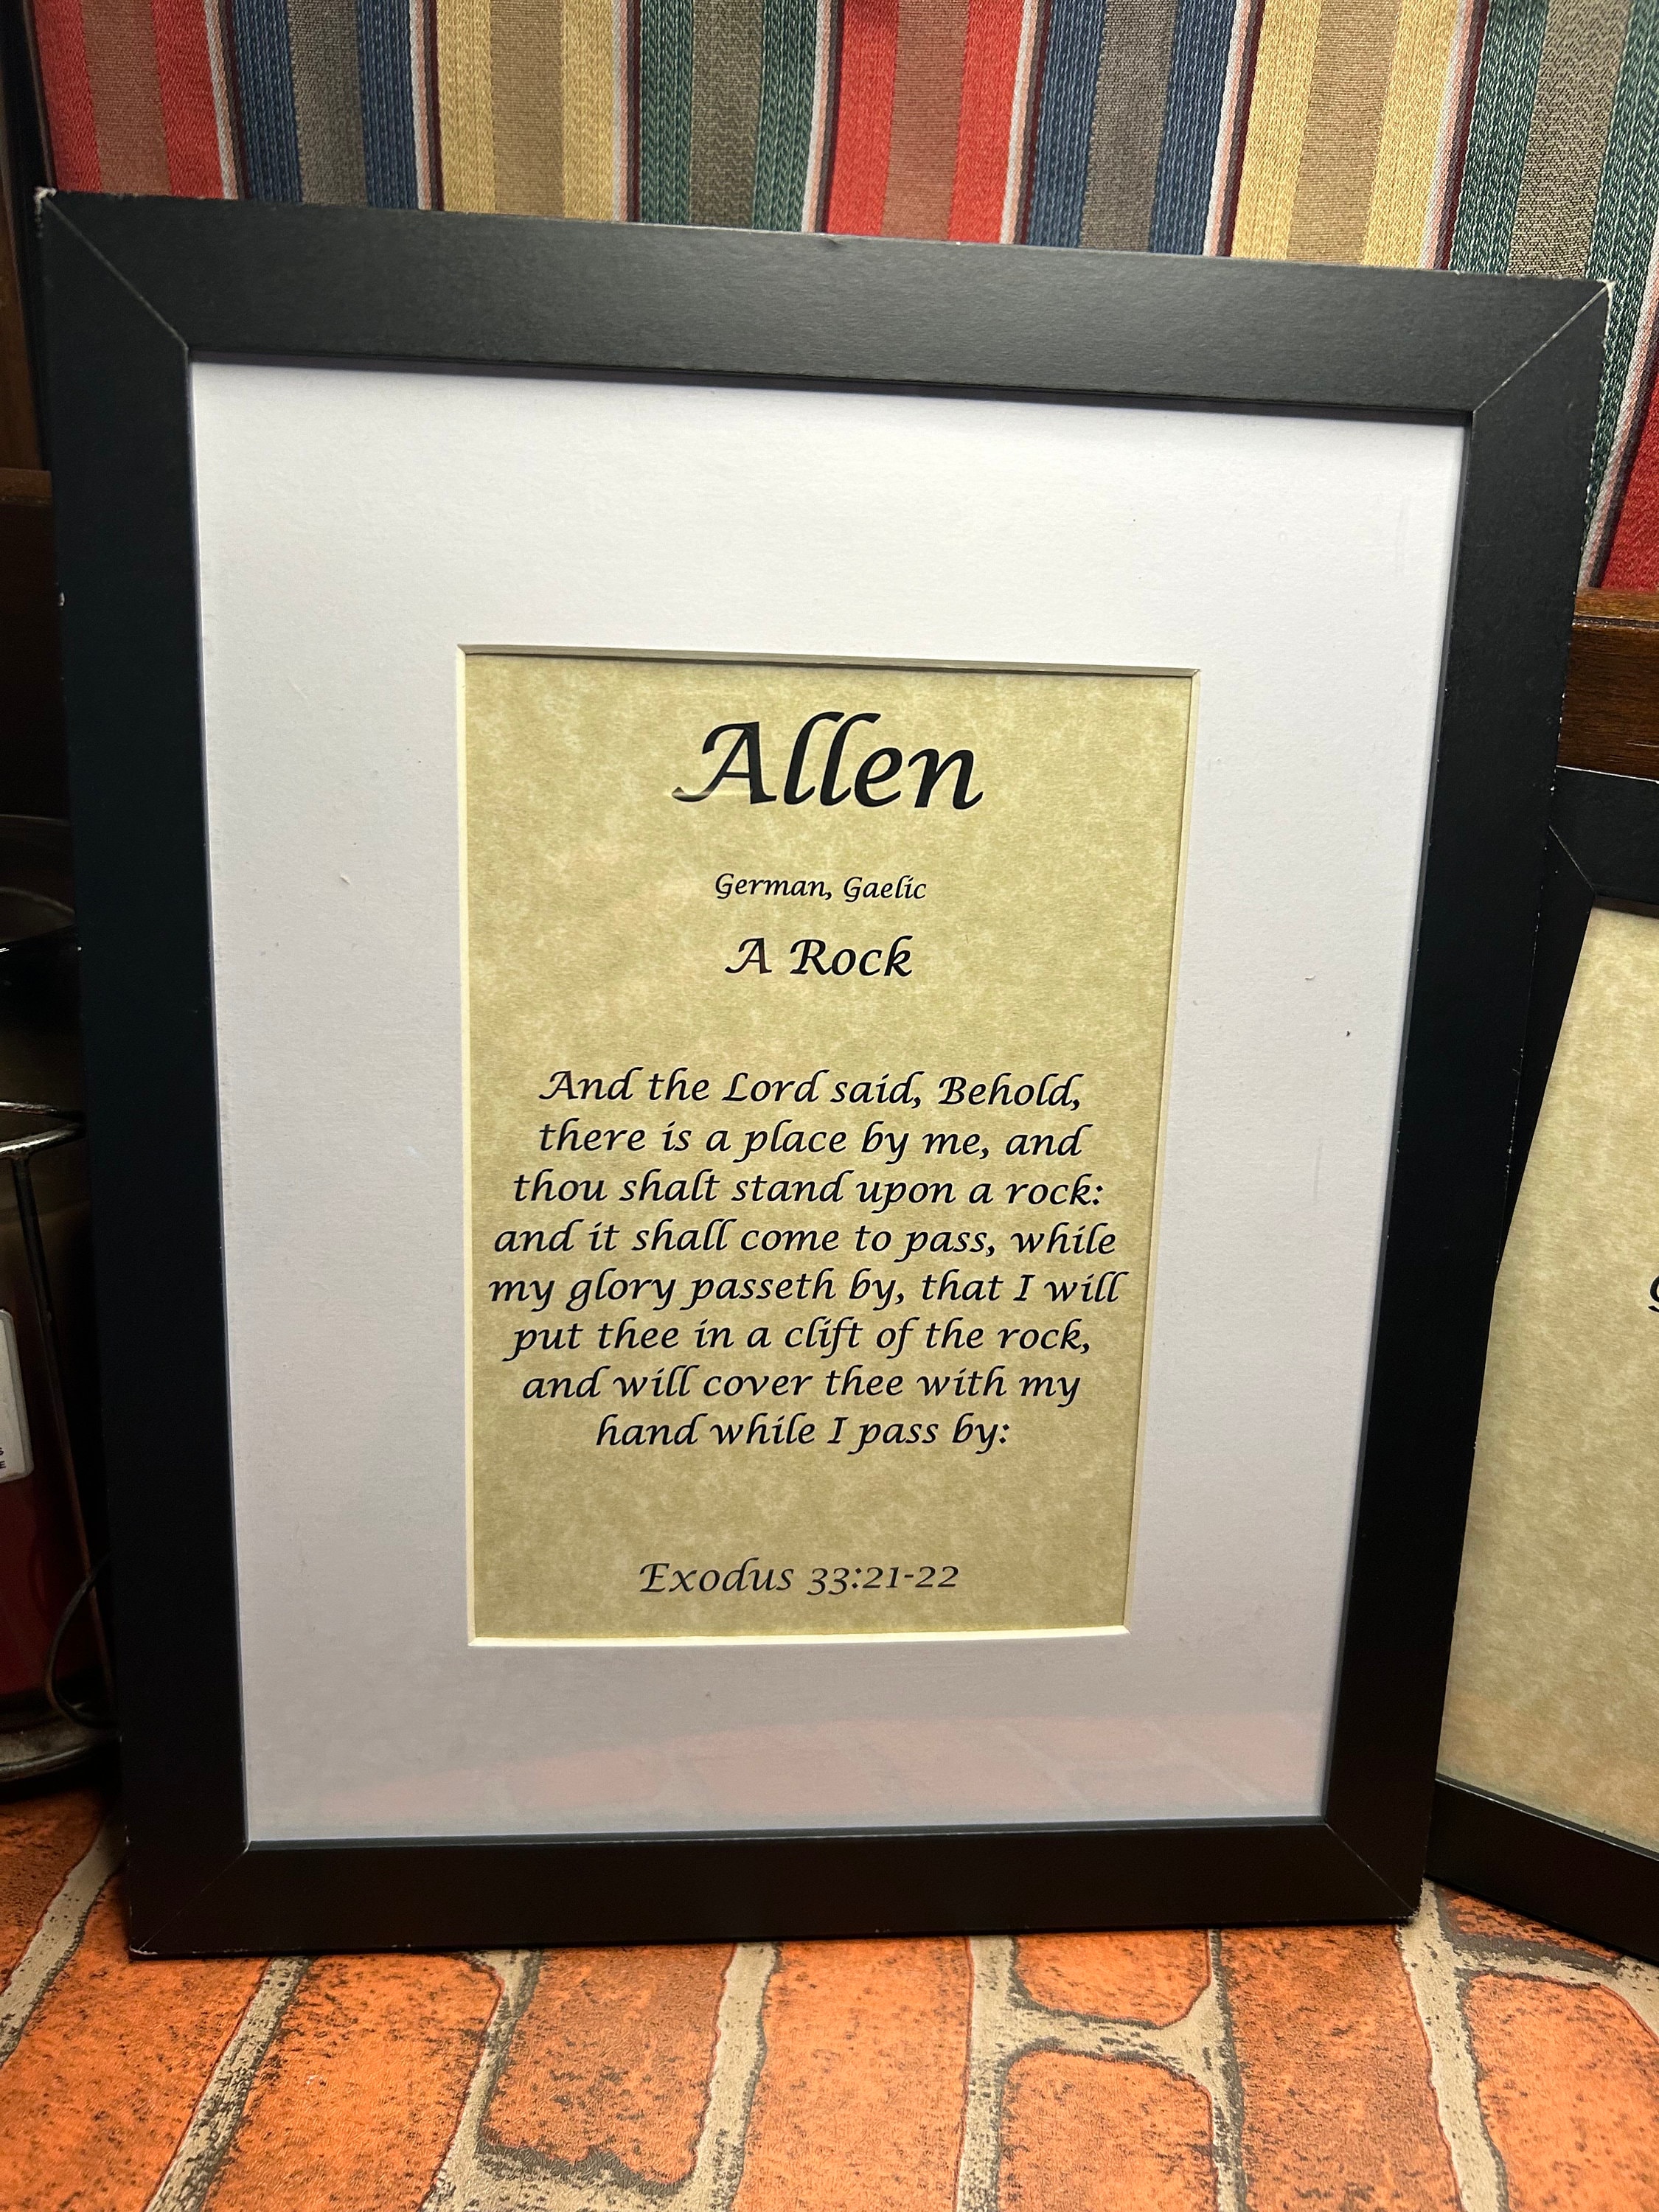 Allen
German, Gaelic
A Rock
And the Lord said, Behold,
there is a place by me, and
thou shalt stand upon a rock:
and it shall come to pass, while
my glory passeth by, that I will
put thee in a clift of the rock,
and will cover thee with my
hand while I pass by:
Exodus 33:21-22